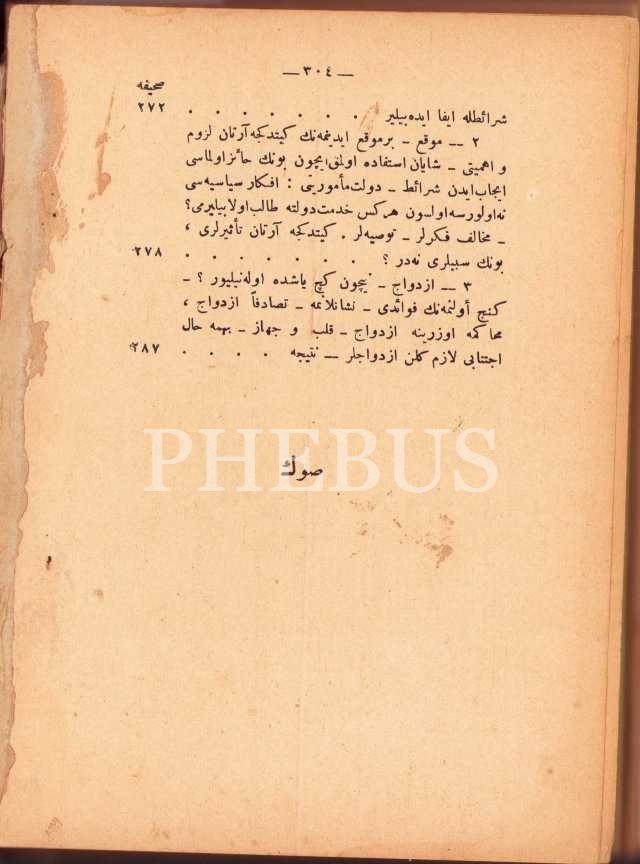 — ٣٠٤ —
صحيفه
شرائطله ايفا ايده‌بيلير . . . . . . . ٢٧٢
٢ — موقع ـ برموقع ايدينمه‌نك كيتدكجه آرتان لزوم
و اهميتى ـ شايان استفاده اولمق ايچون بونك حائز اولماسى
ايجاب ايدن شرائط ـ دولت مأموريتى : افكار سياسيه‌سى
نه اولورسه اولسون هركس خدمت دولته طالب اولابيليرمى؟
ـ مخالف فكرلر ـ توصيه‌لر . كيتدكجه آرتان تأثيرلرى ،
بونك سببلرى نه‌در ؟ . . . . . . . ٢٧٨
٣ — ازدواج ـ نيچون كچ ياشده اوله‌نيليور ؟ ـ
كنج أولنمه‌نك فوائدى ـ نشانلانمه ـ تصادفاً ازدواج ،
محاكمه اوزرينه ازدواج ـ قلب و جهاز ـ بهمه حال
اجتنابى لازم كلن ازدواجلر — نتيجه . . . . ٢٨٧
صوڭ
PHEBUS